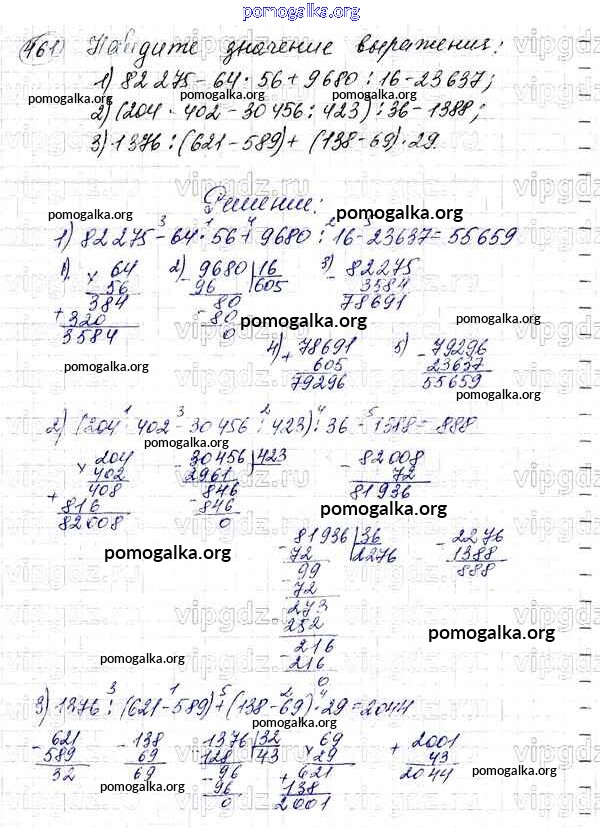 pomogalka.org
461) Найдите значение выражения:
1) 82 275 - 64 · 56 + 9680 : 16 - 23637;
pomogalka.org pomogalka.org
2) (204 · 402 - 30456 : 423) : 36 - 1388;
3) 1376 : (621 - 589) + (138 - 69) · 29
vipgdz.ru vipgdz.ru vipgdz
Решение:
pomogalka.org pomogalka.org
1) 82 275 - 64 · 56 + 9680 : 16 - 23637 = 55659
3 1 4 2 5
1) 64 2) 9680 |16 3) 82275
× 56 - 96 605 - 3584
384 80 78691
+ 320 - 80
3584 0
pomogalka.org
4) 78691 5) 79296
+ 605 - 23637
79296 55659
pomogalka.org pomogalka.org
2) (204 · 402 - 30 456 : 423) : 36 - 1388 = 888
1 3 2 4 5
pomogalka.org
204 30456 |423 82008
× 402 - 2961 - 72
408 846 81936
+ 816 - 846
82008 0
pomogalka.org
pomogalka.org
81936 |36 2276
- 72 2276 - 1388
99 888
- 72
273
- 252
216
- 216
0
pomogalka.org
pomogalka.org
3) 1376 : (621 - 589) + (138 - 69) · 29 = 2044
3 1 5 2 4
621 138 1376 |32 69 2001
- 589 - 69 - 128 43 × 29 + 43
32 69 96 621 2044
- 96 + 138
0 2001
pomogalka.org pomogalka.org